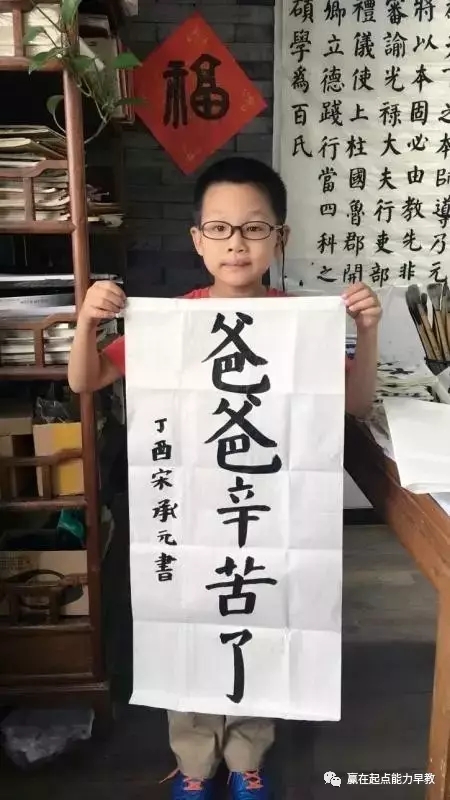 福
下之本師導乃元
將以本固必由教先非
審諭光祿大夫行吏部
禮儀使上柱國魯郡開
卿立德踐行當四科之
碩學為百氏
爸爸辛苦了
丁酉宋承元書
赢在起点能力早教